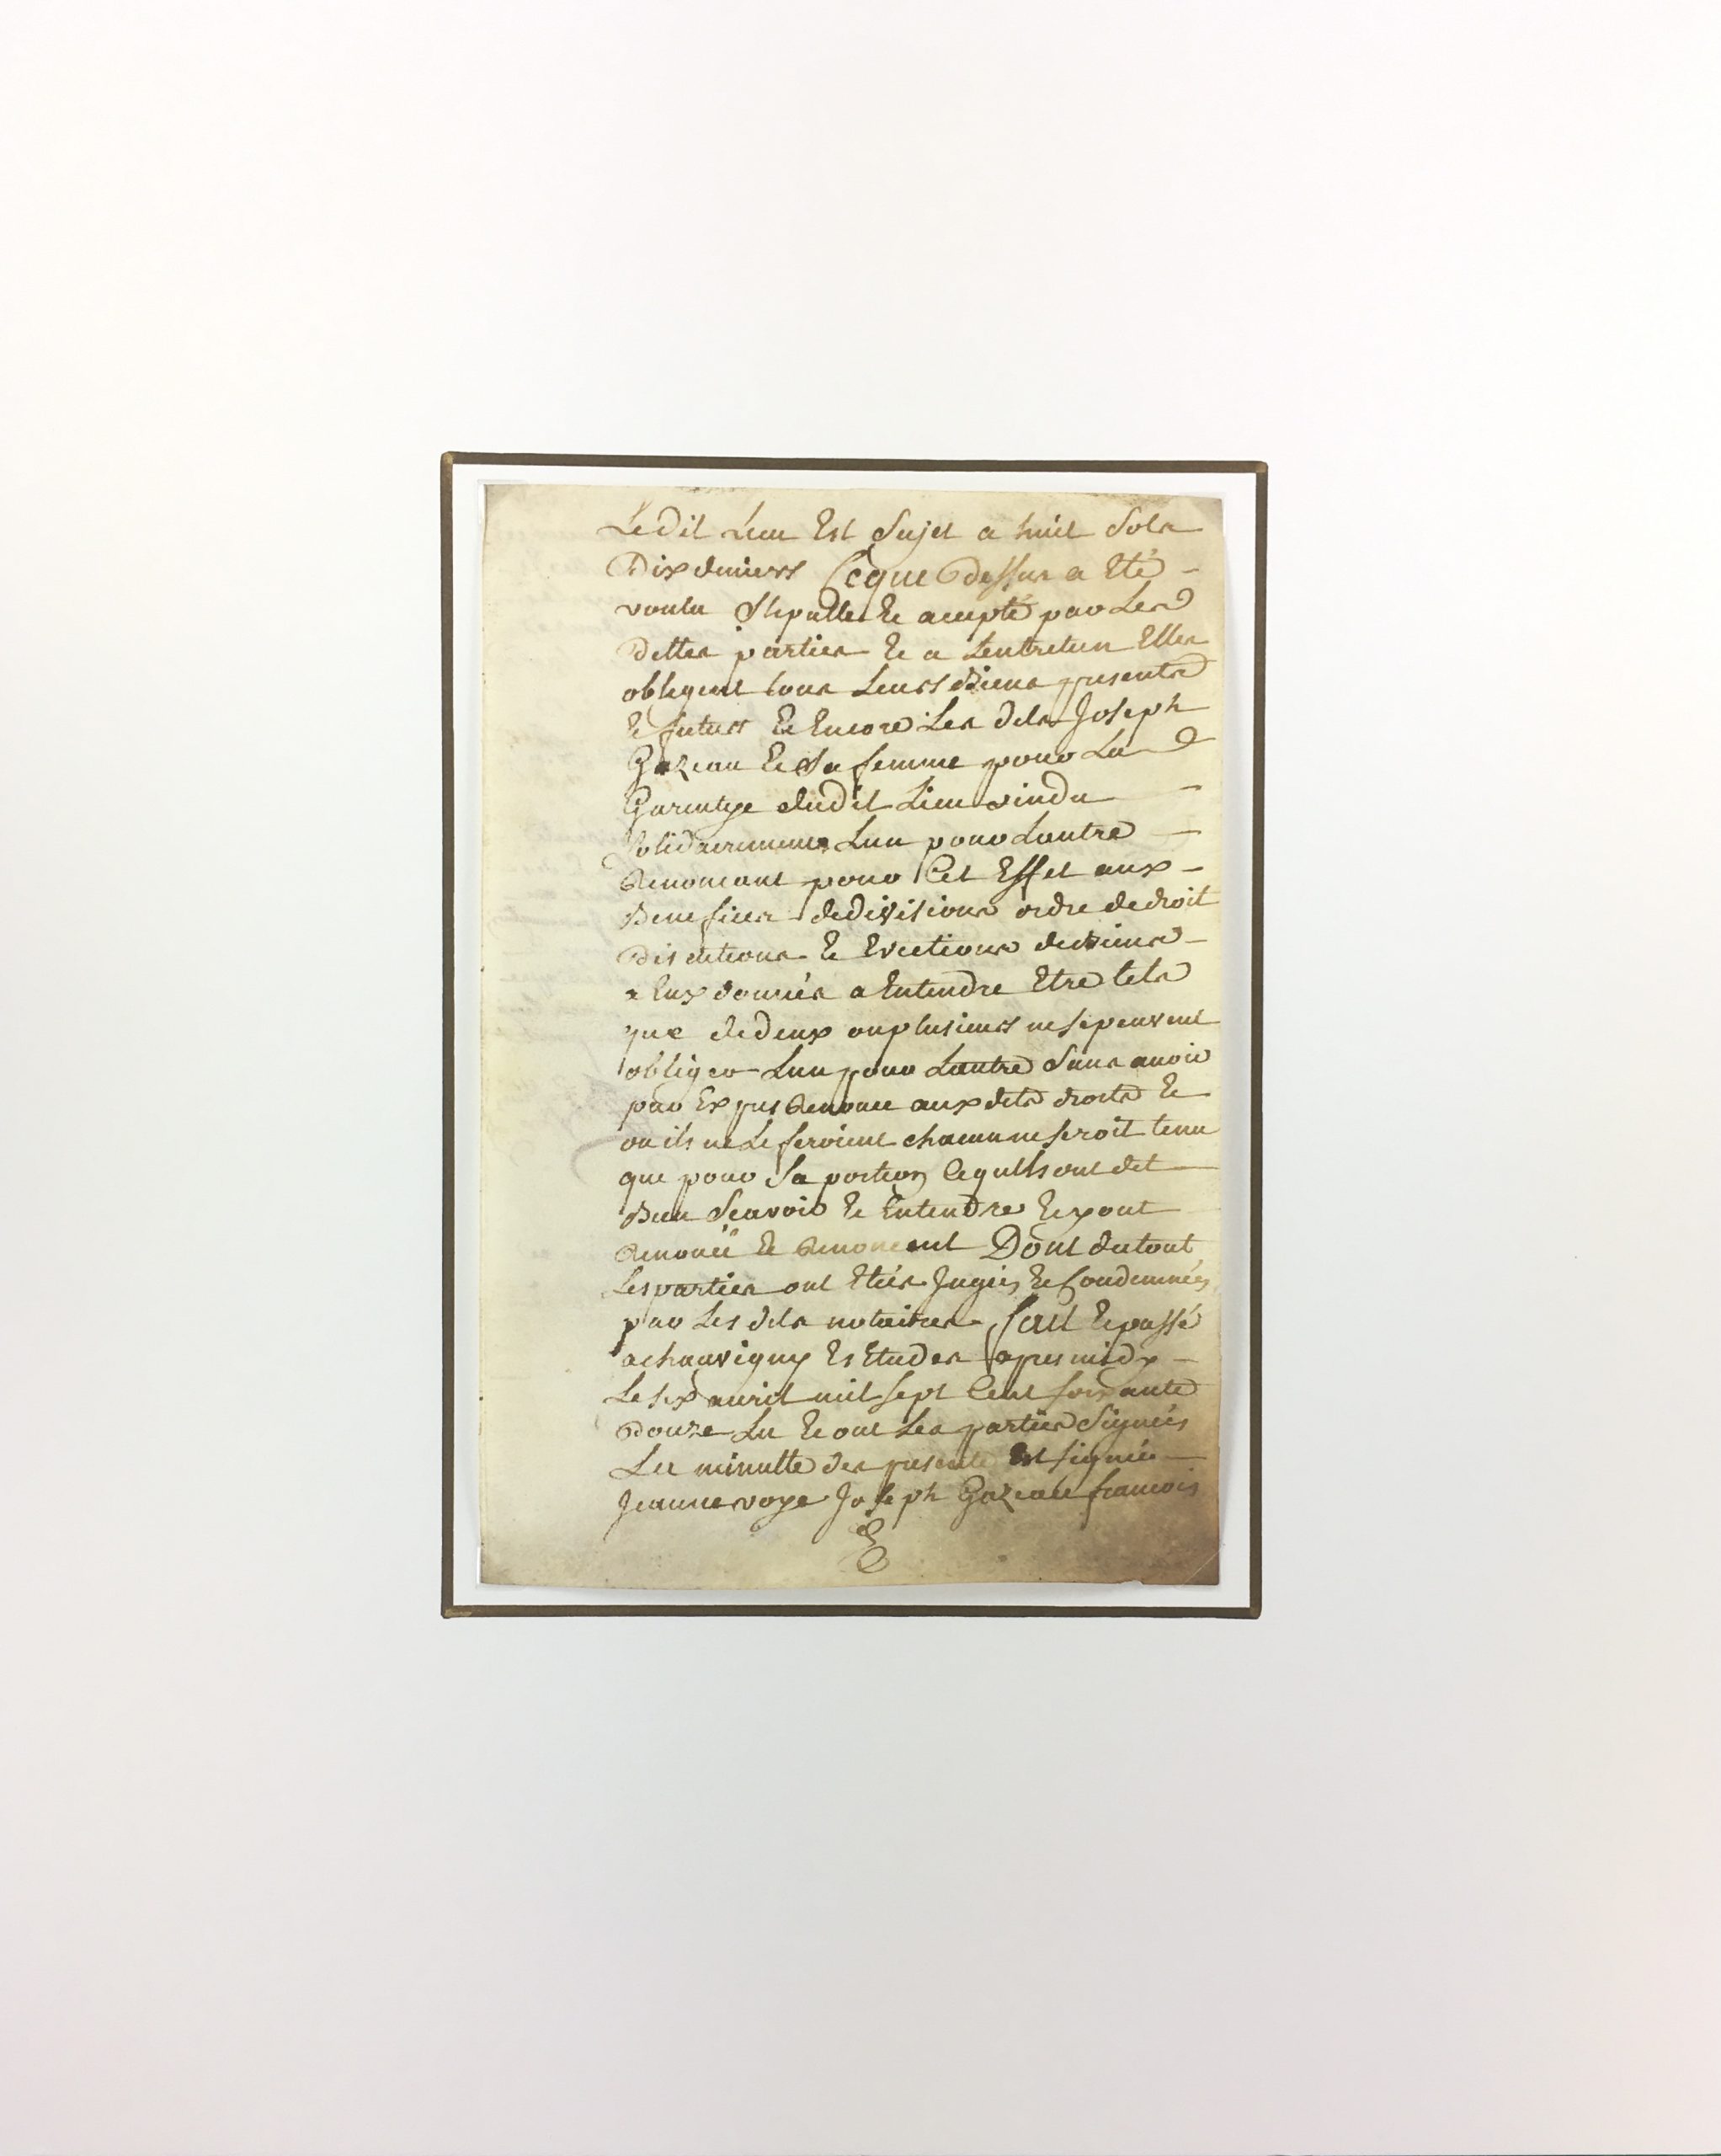 Ledit Lieu Est Sujet a huit Sols
Dix deniers Ce que Dessus a Eté
voulu Stipullé Et accepté par Les
dittes parties Et a Lentretien Elles
obligent tous Leurs Biens presents
Et futurs Et Encore Les dits Joseph
Gazeau Et Sa femme pour La
Garentye dudit Lieu vendu
Solidairement Lun pour Lautre
Renoncant pour Cet Effet aux
Benefices de divisions ordre de droit
Discutions Et Evictions de biens
a Eux donnés a Entendre Etre tels
que de deux ou plusieurs ne se peuvent
obliger Lun pour Lautre Sans avoir
par Exprès Renoncé aux dits droits Et
ou ils ne Le feroient chacun ne seroit tenu
que pour Sa portion Ce quils ont dit
Bien Scavoir Et Entendre Et y ont
Renoncé Et Renoncent Dont du tout
Les parties ont Etés Jugés Et Condemnés
par Les dits notaires fait Et passé
a chauvigny Es Etudes apres midy
Le six avril mil sept Cent soixante
Douze Lu Et ont Les parties Signées
La minutte des presente Est signée
Jeanne voye Joseph Gazeau francois